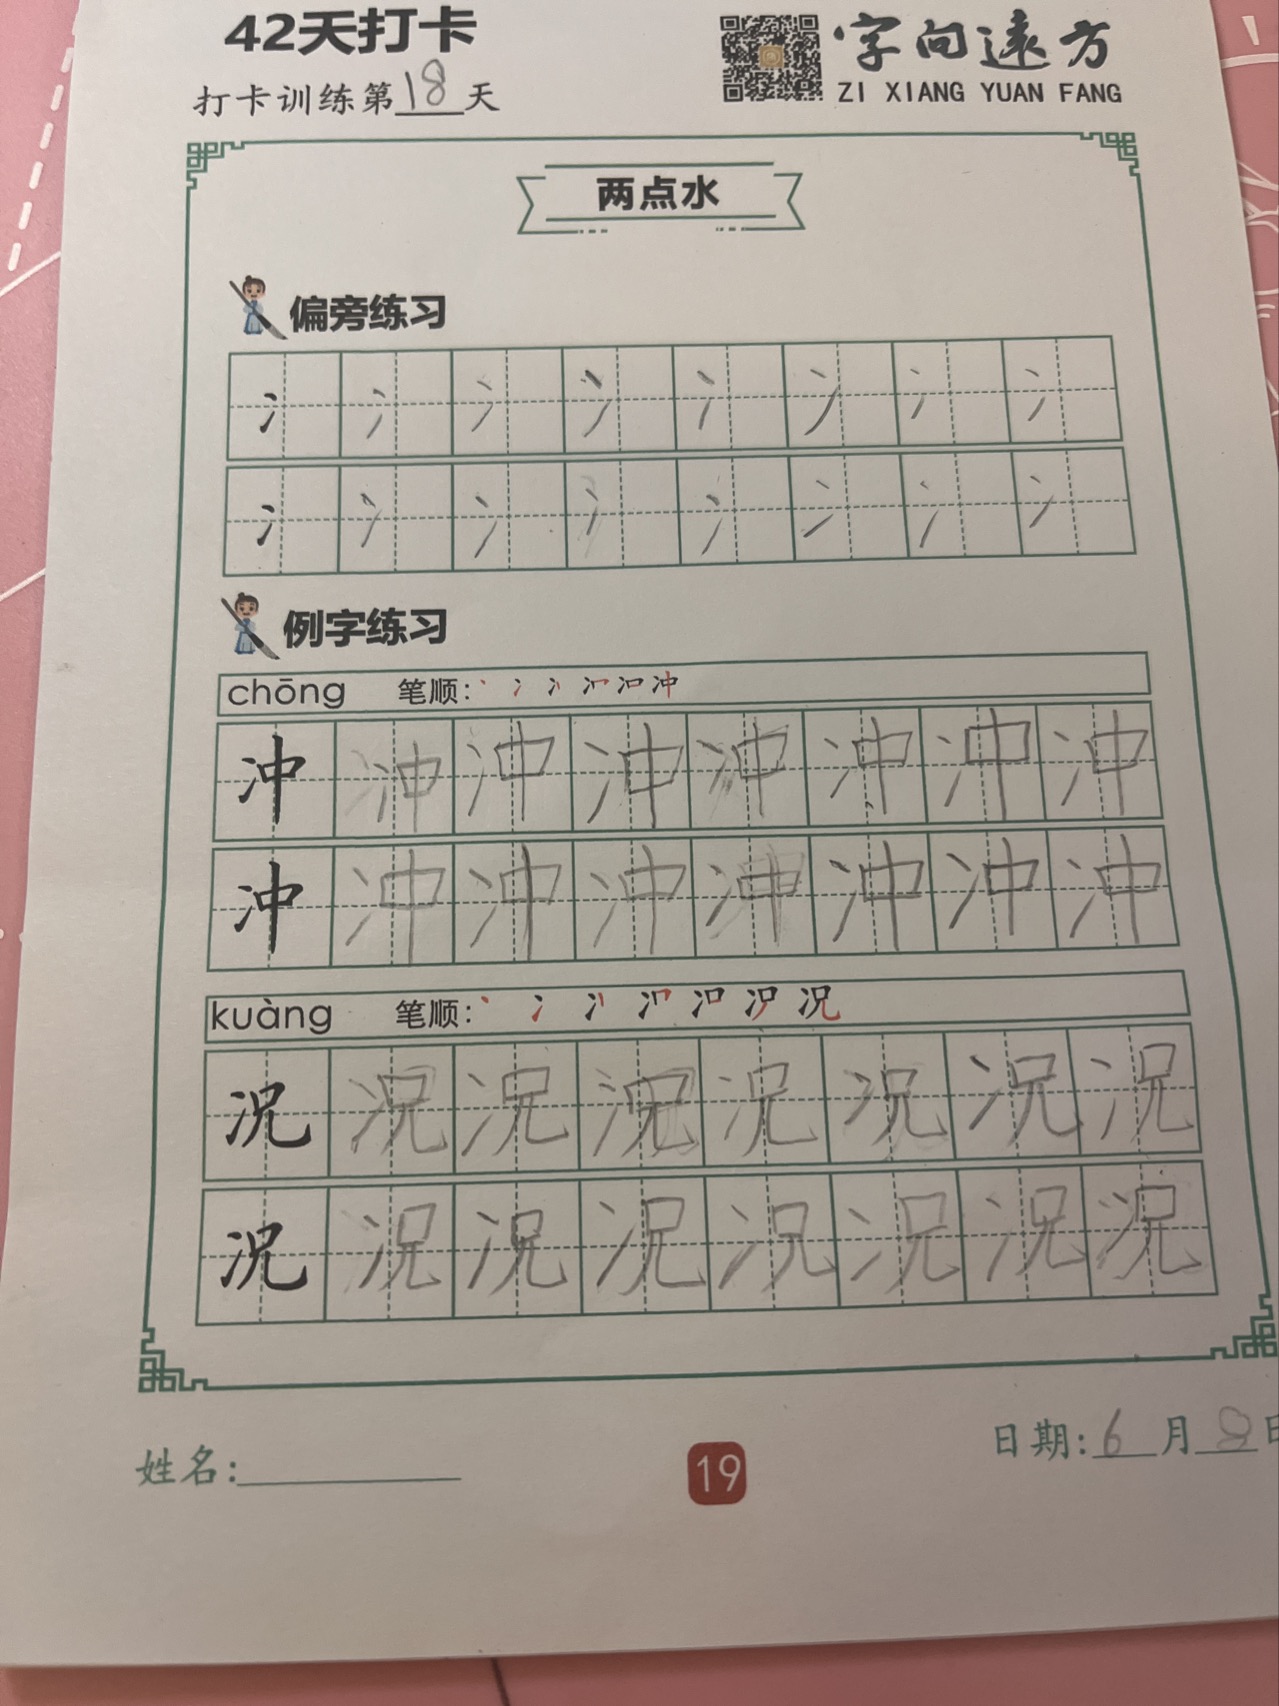 42天打卡
字向远方
打卡训练第18天
ZI XIANG YUAN FANG
两点水
偏旁练习
冫 冫 冫 冫 冫 冫 冫 冫
冫 冫 冫 冫 冫 冫 冫 冫
例字练习
chōng 笔顺:
冲 冲 冲 冲 冲 冲 冲 冲
冲 冲 冲 冲 冲 冲 冲 冲
kuàng 笔顺:
况 况 况 况 况 况 况 况
况 况 况 况 况 况 况 况
姓名:
19
日期:6月8日